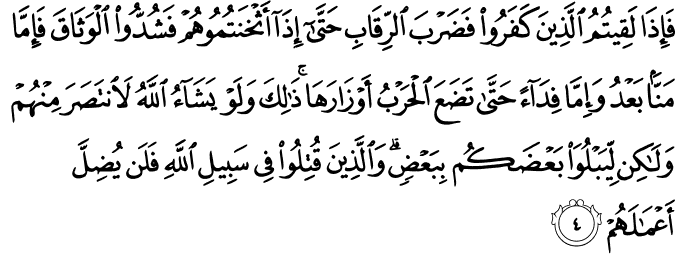 فَإِذَا لَقِيتُمُ ٱلَّذِينَ كَفَرُوا۟ فَضَرْبَ ٱلرِّقَابِ حَتَّىٰٓ إِذَآ أَثْخَنتُمُوهُمْ فَشُدُّوا۟ ٱلْوَثَاقَ فَإِمَّا
مَنًّۢا بَعْدُ وَإِمَّا فِدَآءً حَتَّىٰ تَضَعَ ٱلْحَرْبُ أَوْزَارَهَا ۚ ذَٰلِكَ وَلَوْ يَشَآءُ ٱللَّهُ لَٱنتَصَرَ مِنْهُمْ
وَلَٰكِن لِّيَبْلُوَا۟ بَعْضَكُم بِبَعْضٍ ۗ وَٱلَّذِينَ قُتِلُوا۟ فِى سَبِيلِ ٱللَّهِ فَلَن يُضِلَّ
أَعْمَٰلَهُمْ ٤